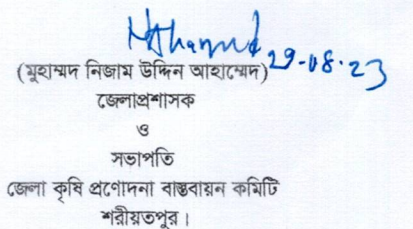 29-08-23
(মুহাম্মদ নিজাম উদ্দিন আহাম্মেদ)
জেলাপ্রশাসক
ও
সভাপতি
জেলা কৃষি প্রণোদনা বাস্তবায়ন কমিটি
শরীয়তপুর।